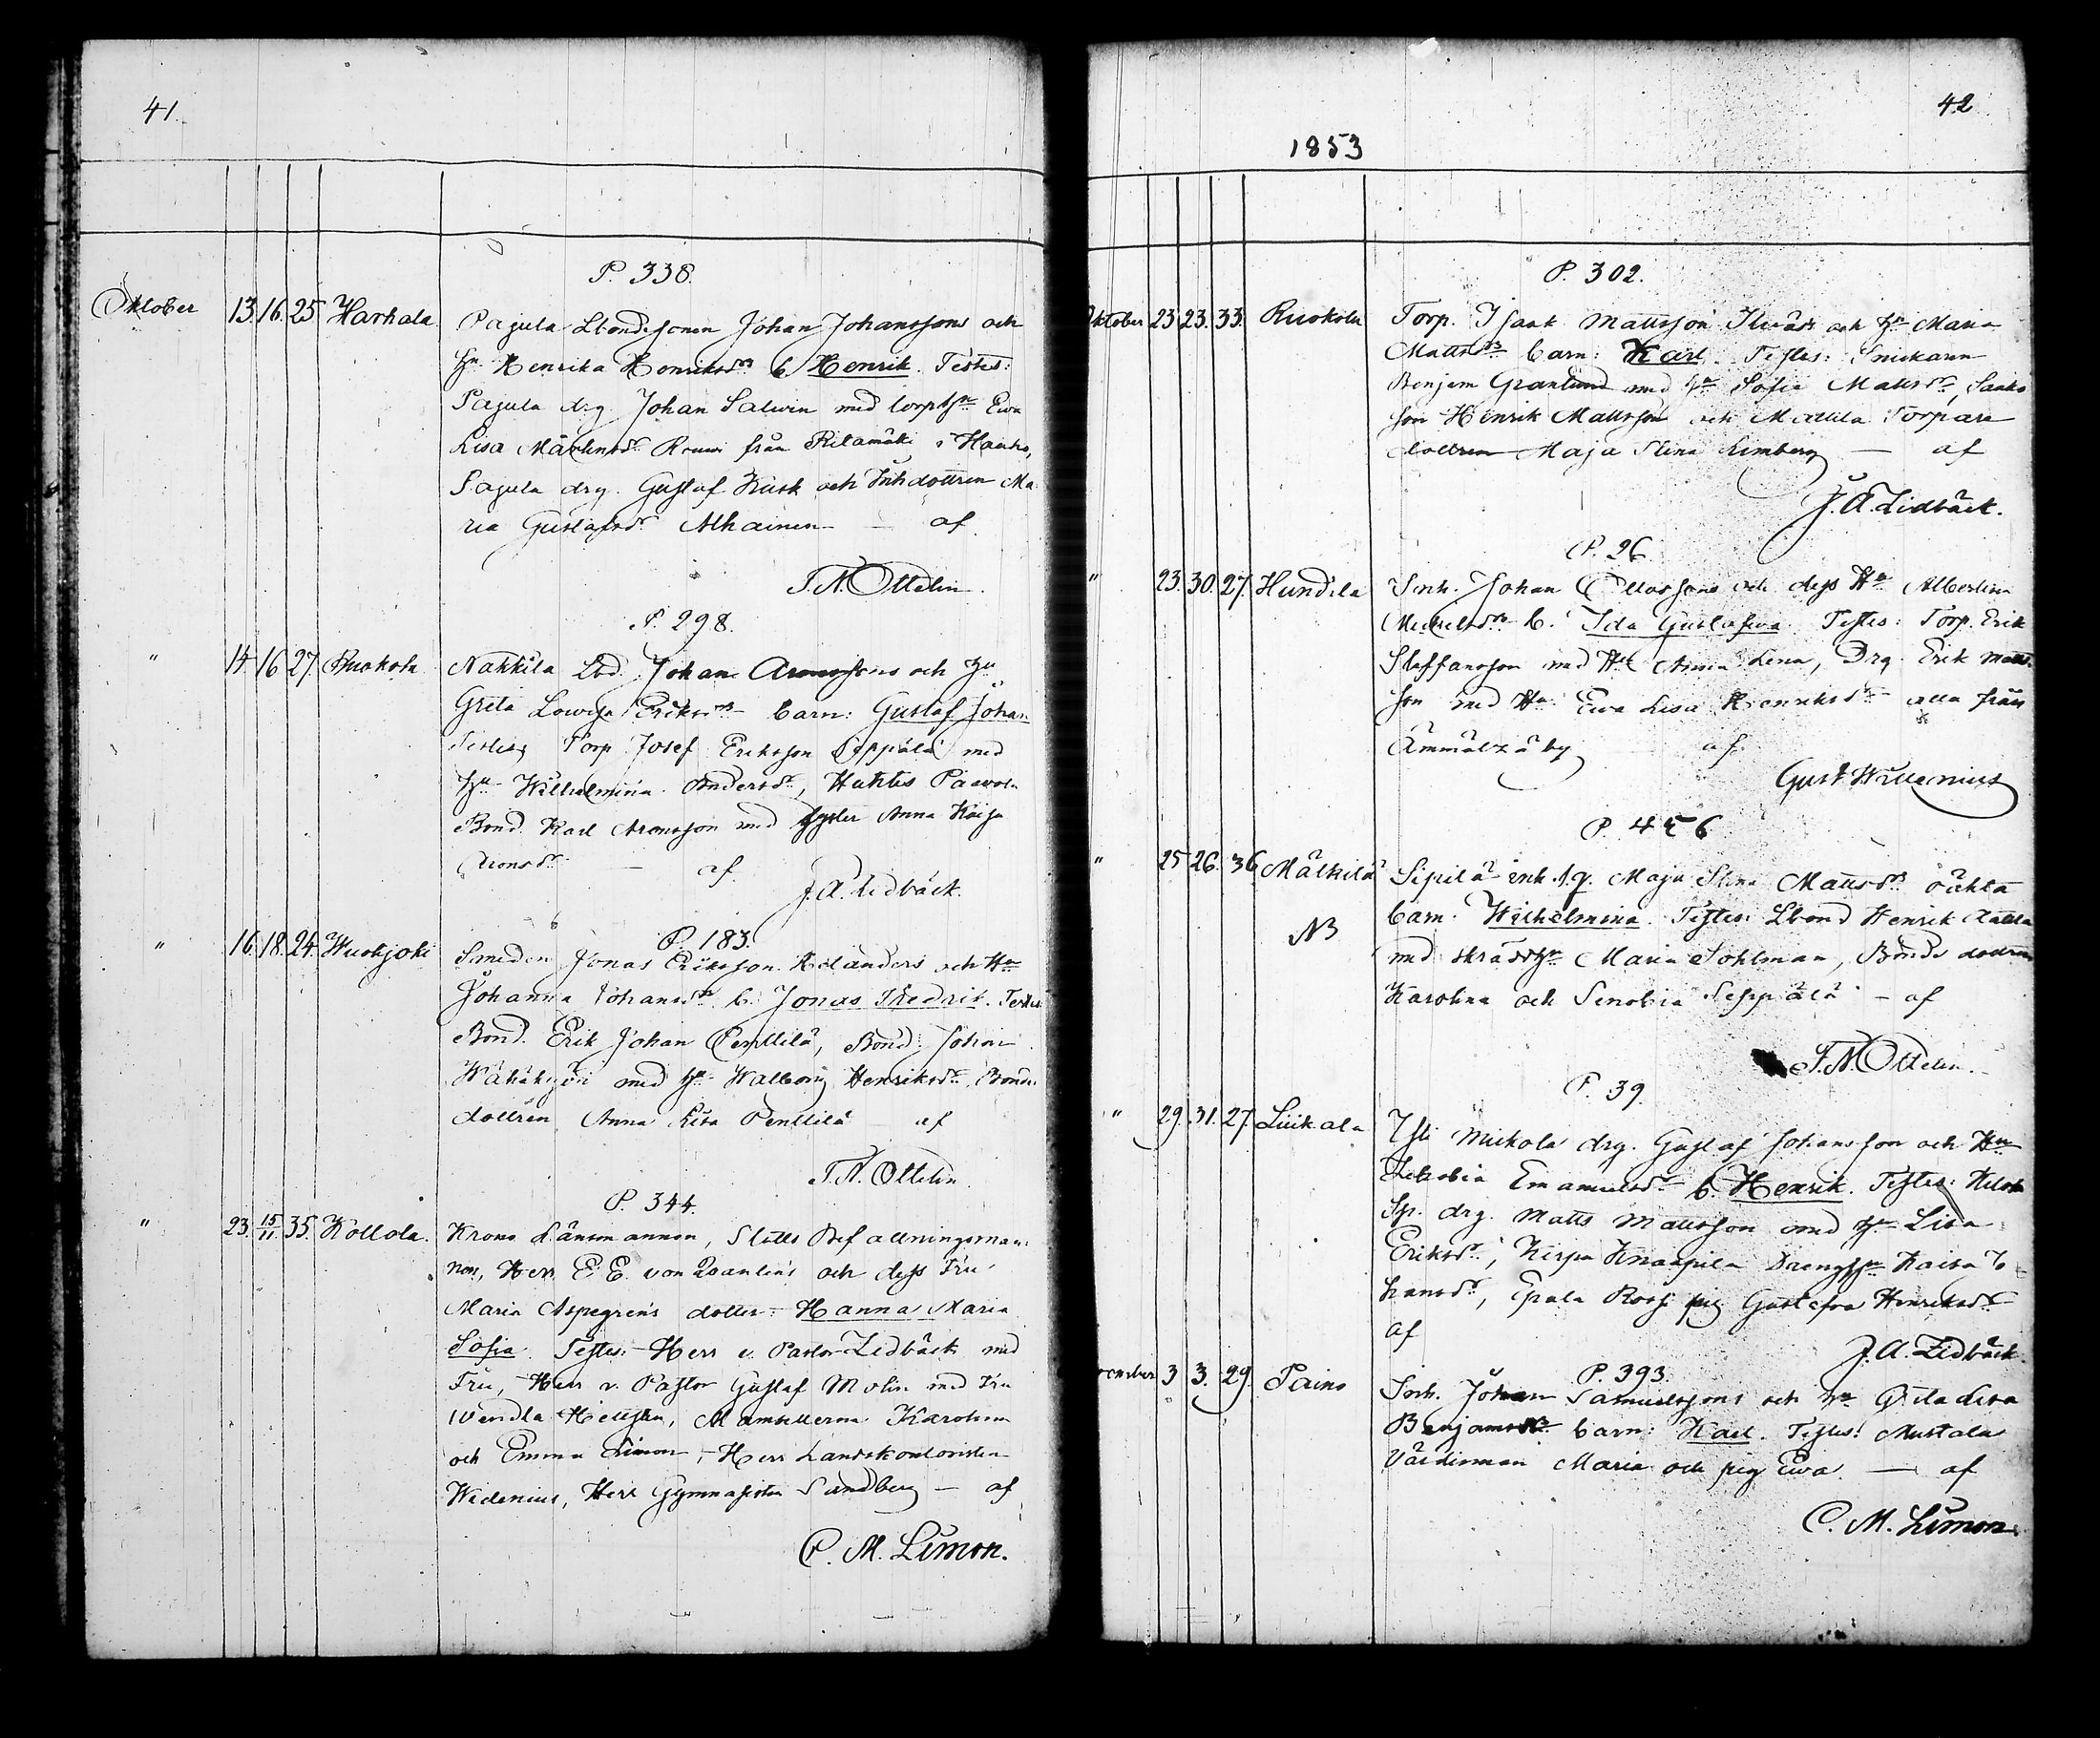 41.
P. 338.
Oktober 13. 16. 25. Harhala Pajula Lbondesonen Johan Johanssons och
hu Henrika Henriksdr b. Henrik. Testes:
Pajula drg. Johan Salwin med torphu Ewa
Lisa Mårtensdr från Ritamäki i Hauho,
Pajula drg. Gustaf Kusk och Inhdottren Ma
ria Gustafsdr Alhainen — af
T. N. Ottelin.
P. 298.
" 14. 16. 27. Ruokola Nakkila Lbd. Johan Aronssons och hu
Greta Lowisa Eriksdrs barn: Gustaf Johan
Testes; Torp Josef Eriksson Seppälä med
hu Wilhelmina Andersdr, Huhtis Paavola
Bond. Karl Aronsson med syster Anna Kaisa
Aronsdr — af
J. A. Lidbäck.
P. 183.
" 16. 18. 24. Wuohjoki Smeden Jonas Eriksson Helanders och Hu
Johanna Johansdrs b. Jonas Fredrik. Testes
Bond. Erik Johan Penttilä, Bond. Johan
Wähäkyöri med hu Walborg Henriksdr, Bonde
dottren Anna Lisa Penttilä af
T. N. Ottelin.
P. 344.
" 23. 15/11 35. Kollola. Krono Länsmannen, Slotts Befallningsman
nen, Herr E. E. von Qvanten's och dess Fru
Maria Aspegren's dotter: Hanna Maria
Sofia. Testes: Herr v. Pastor Lidbäck med
Fru, Herr v. Pastor Gustaf Molin med Fru
Wendla Mamsellerna Karolina
och Emma Limon, Herr Landskontoristen
Widenius, Herr Gymnasisten Sundberg — af
C. M. Limon.
42
1853
P. 302.
Oktober 23 23. 33. Ruokola Torp. Isaak Mattsson och hu Maria
Mattsdrs barn: Karl. Testes: Snickaren
Benjam Granlund med hu Sofia Mattsdr,
son Henrik Mattsson och Mattila Torpare
dottren Maja Stina Limberg — af
J. A. Lidbäck.
P. 26.
" 23. 30. 27. Hundila Inh. Johan och dess Hu Albertina
Mickelsdrs b. Ida Gustafwa. Testes: Torp. Erik
Staffansson med Hu Anna Lena, Drg. Erik Matts
son med Hu Ewa Lisa Henriksdr alla från
Ämmälzä by af
Gust. Willenius
P. 456
" 25. 26. 36 Mälkilä Sipilä inh. Maja Stina Mattsdrs oäkta
NB barn: Wilhelmina. Testes: Lbond Henrik
med skräddhu Maria Sohlman, Bonde dottren
Karolina och Senobia Seppälä — af
T. N. Ottelin.
P. 39.
" 29. 31. 27. Liikala Mickola drg. Gustaf Johansson och Hu
Emanuelsdr b. Henrik. Testes:
Sp. drg. Matts Mattsson med hu Lisa
Eriksdr, Kirpa Knaapila Drenghu Kaisa Jo
hansdr, Rosj pig Gustafva Henriksdr
af
J. A. Lidbäck.
P. 393.
November 3 3. 29. Taino Inh. Johan Samuelssons och hu Lisa
Benjamsdrs barn: Karl. Testes: Mustala
Värdinnan Maria och pig Ewa. — af
C. M. Limon